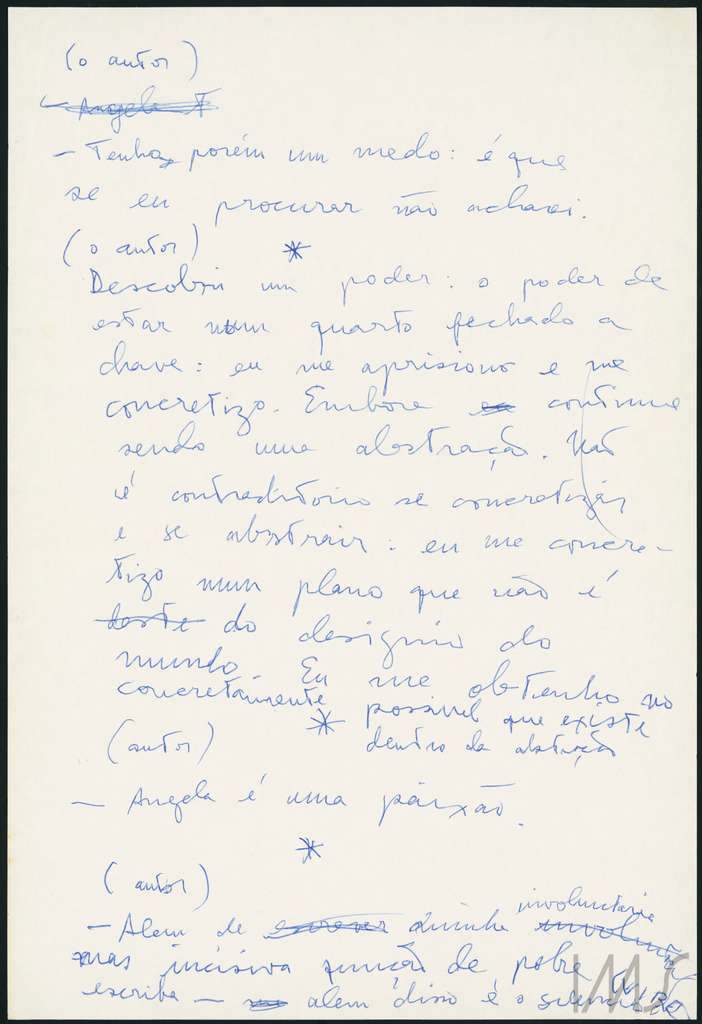 (o autor)
Angela F
— Tenho, porém um medo: é que
se eu procurar não acharei.
(o autor) *
Descobri um poder: o poder de
estar num quarto fechado a
chave: eu me aprisiono e me
concretizo. Embora eu continue
sendo uma abstração. Não
é contraditório se concretizar
e se abstrair: eu me concre-
tizo num plano que não é
deste do designio do
mundo. Eu me obtenho no
concretamente possivel que existe
(autor) * dentro da abstração
— Angela é uma paixão.
*
(autor)
involuntária
— Alem de escrever minha involuntária
mas incisiva função de pobre
escriba — alem disso é o silencio
IMS